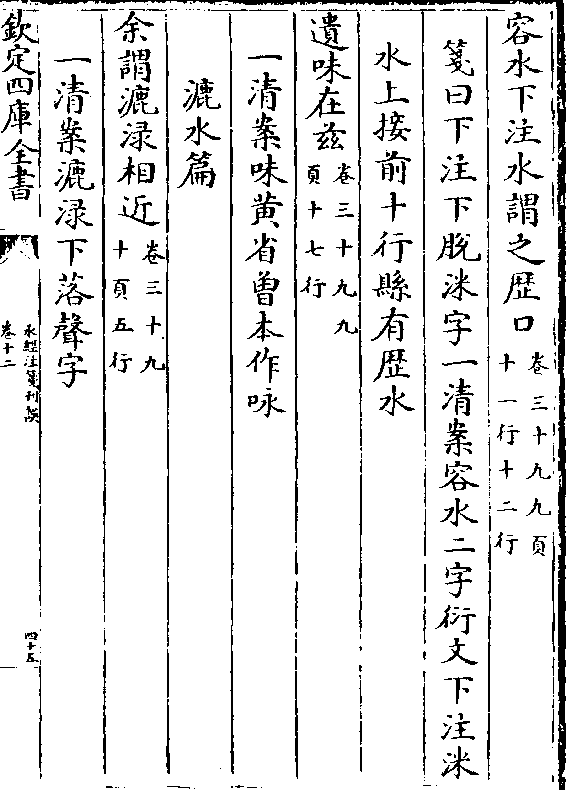 容水下注水謂之歴口卷三十九九頁
十一行十二行
箋曰下注下脫洣字一清案容水二字衍文下注洣
水上接前十行縣有歴水
遺味在兹卷三十九九
頁十七行
一清案味黄省曾本作咏
漉水篇
余謂漉渌相近卷三十九
十頁五行
一清案漉渌下落聲字
欽定四庫全書
水經注箋刊誤
卷十二
四十五